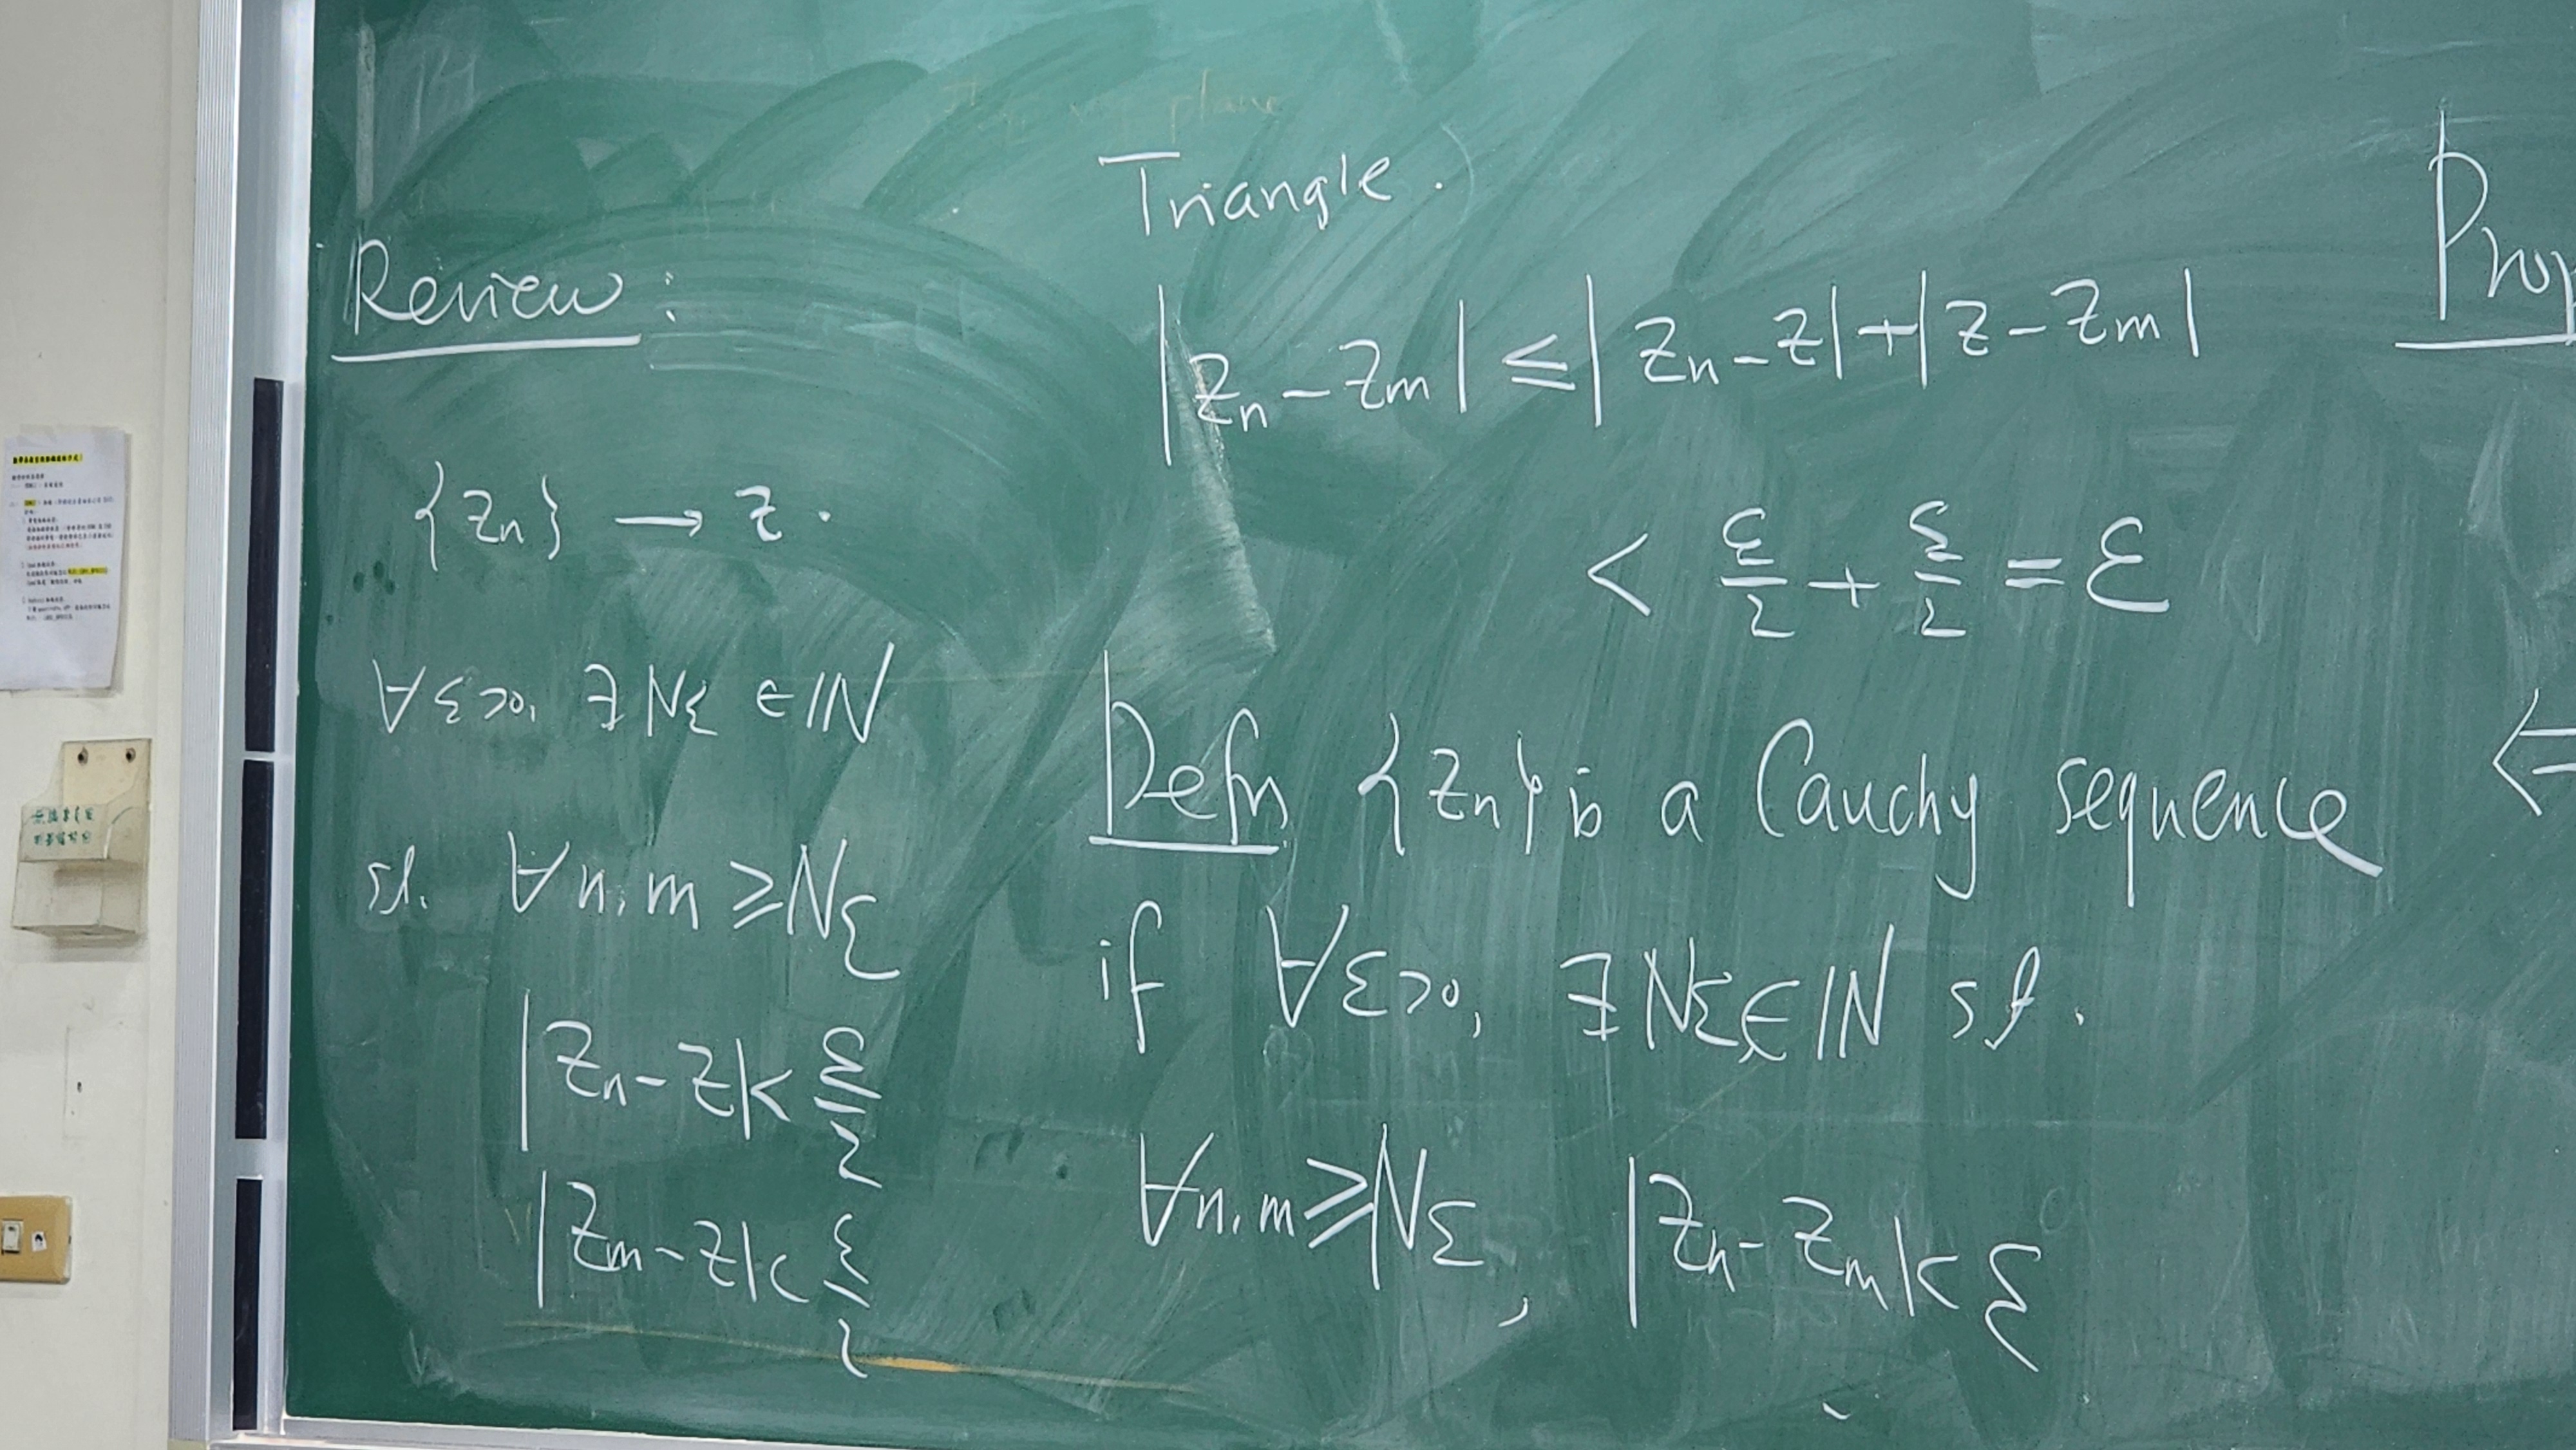 Review:
{Zn} → Z.
∀ε>0, ∃Nε ∈ ℕ
st. ∀n,m ≥ Nε
|Zn-Z| < ε/2
|Zm-Z| < ε/2
Triangle.
|Zn-Zm| ≤ |Zn-Z|+|Z-Zm|
< ε/2 + ε/2 = ε
Defn {Zn} is a Cauchy sequence
if ∀ε>0, ∃Nε∈ℕ st.
∀n,m ≥ Nε, |Zn-Zm| < ε
Prop
⇐
plane